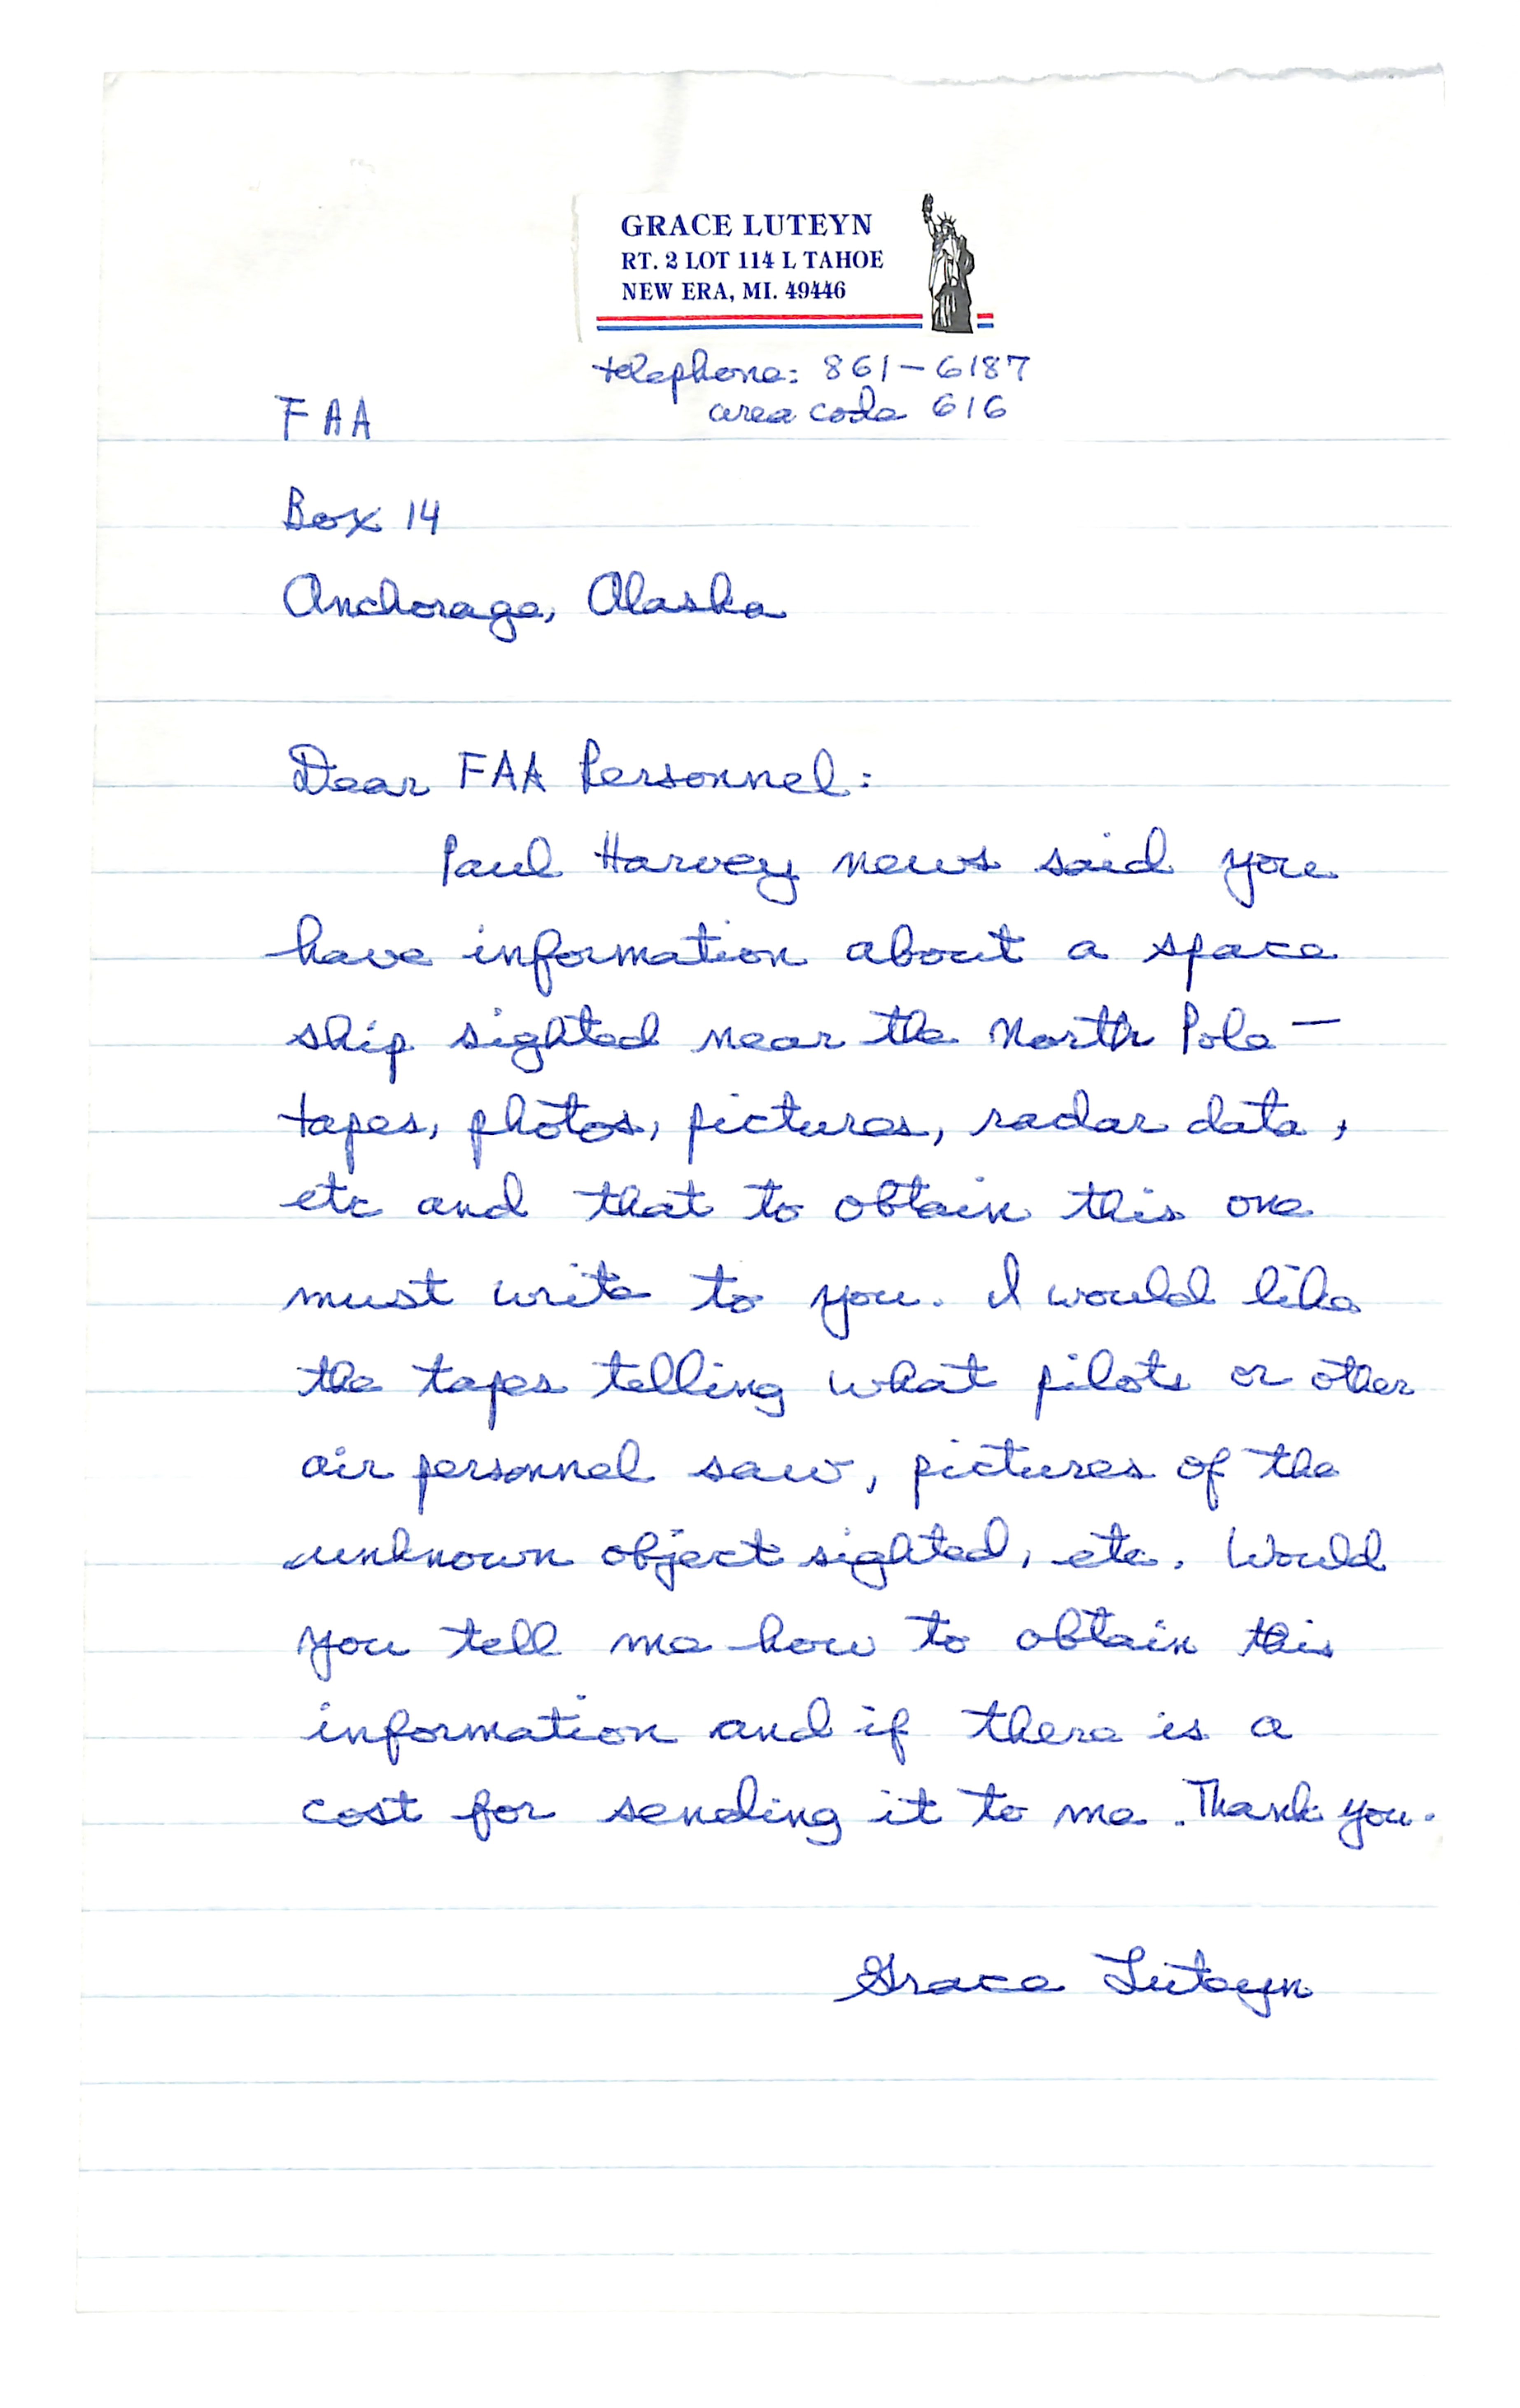 GRACE LUTEYN
RT. 2 LOT 114 L TAHOE
NEW ERA, MI. 49446
telephone: 861-6187
area code 616
FAA
Box 14
Anchorage, Alaska
Dear FAA Personnel:
Paul Harvey news said you
have information about a space
ship sighted near the North Pole—
tapes, photos, pictures, radar data,
etc and that to obtain this one
must write to you. I would like
the tapes telling what pilots or other
air personnel saw, pictures of the
unknown object sighted, etc. Would
you tell me how to obtain this
information and if there is a
cost for sending it to me. Thank you.
Grace Luteyn